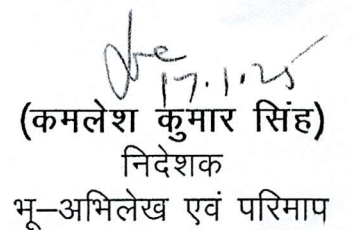 17.1.25
(कमलेश कुमार सिंह)
निदेशक
भू–अभिलेख एवं परिमाप